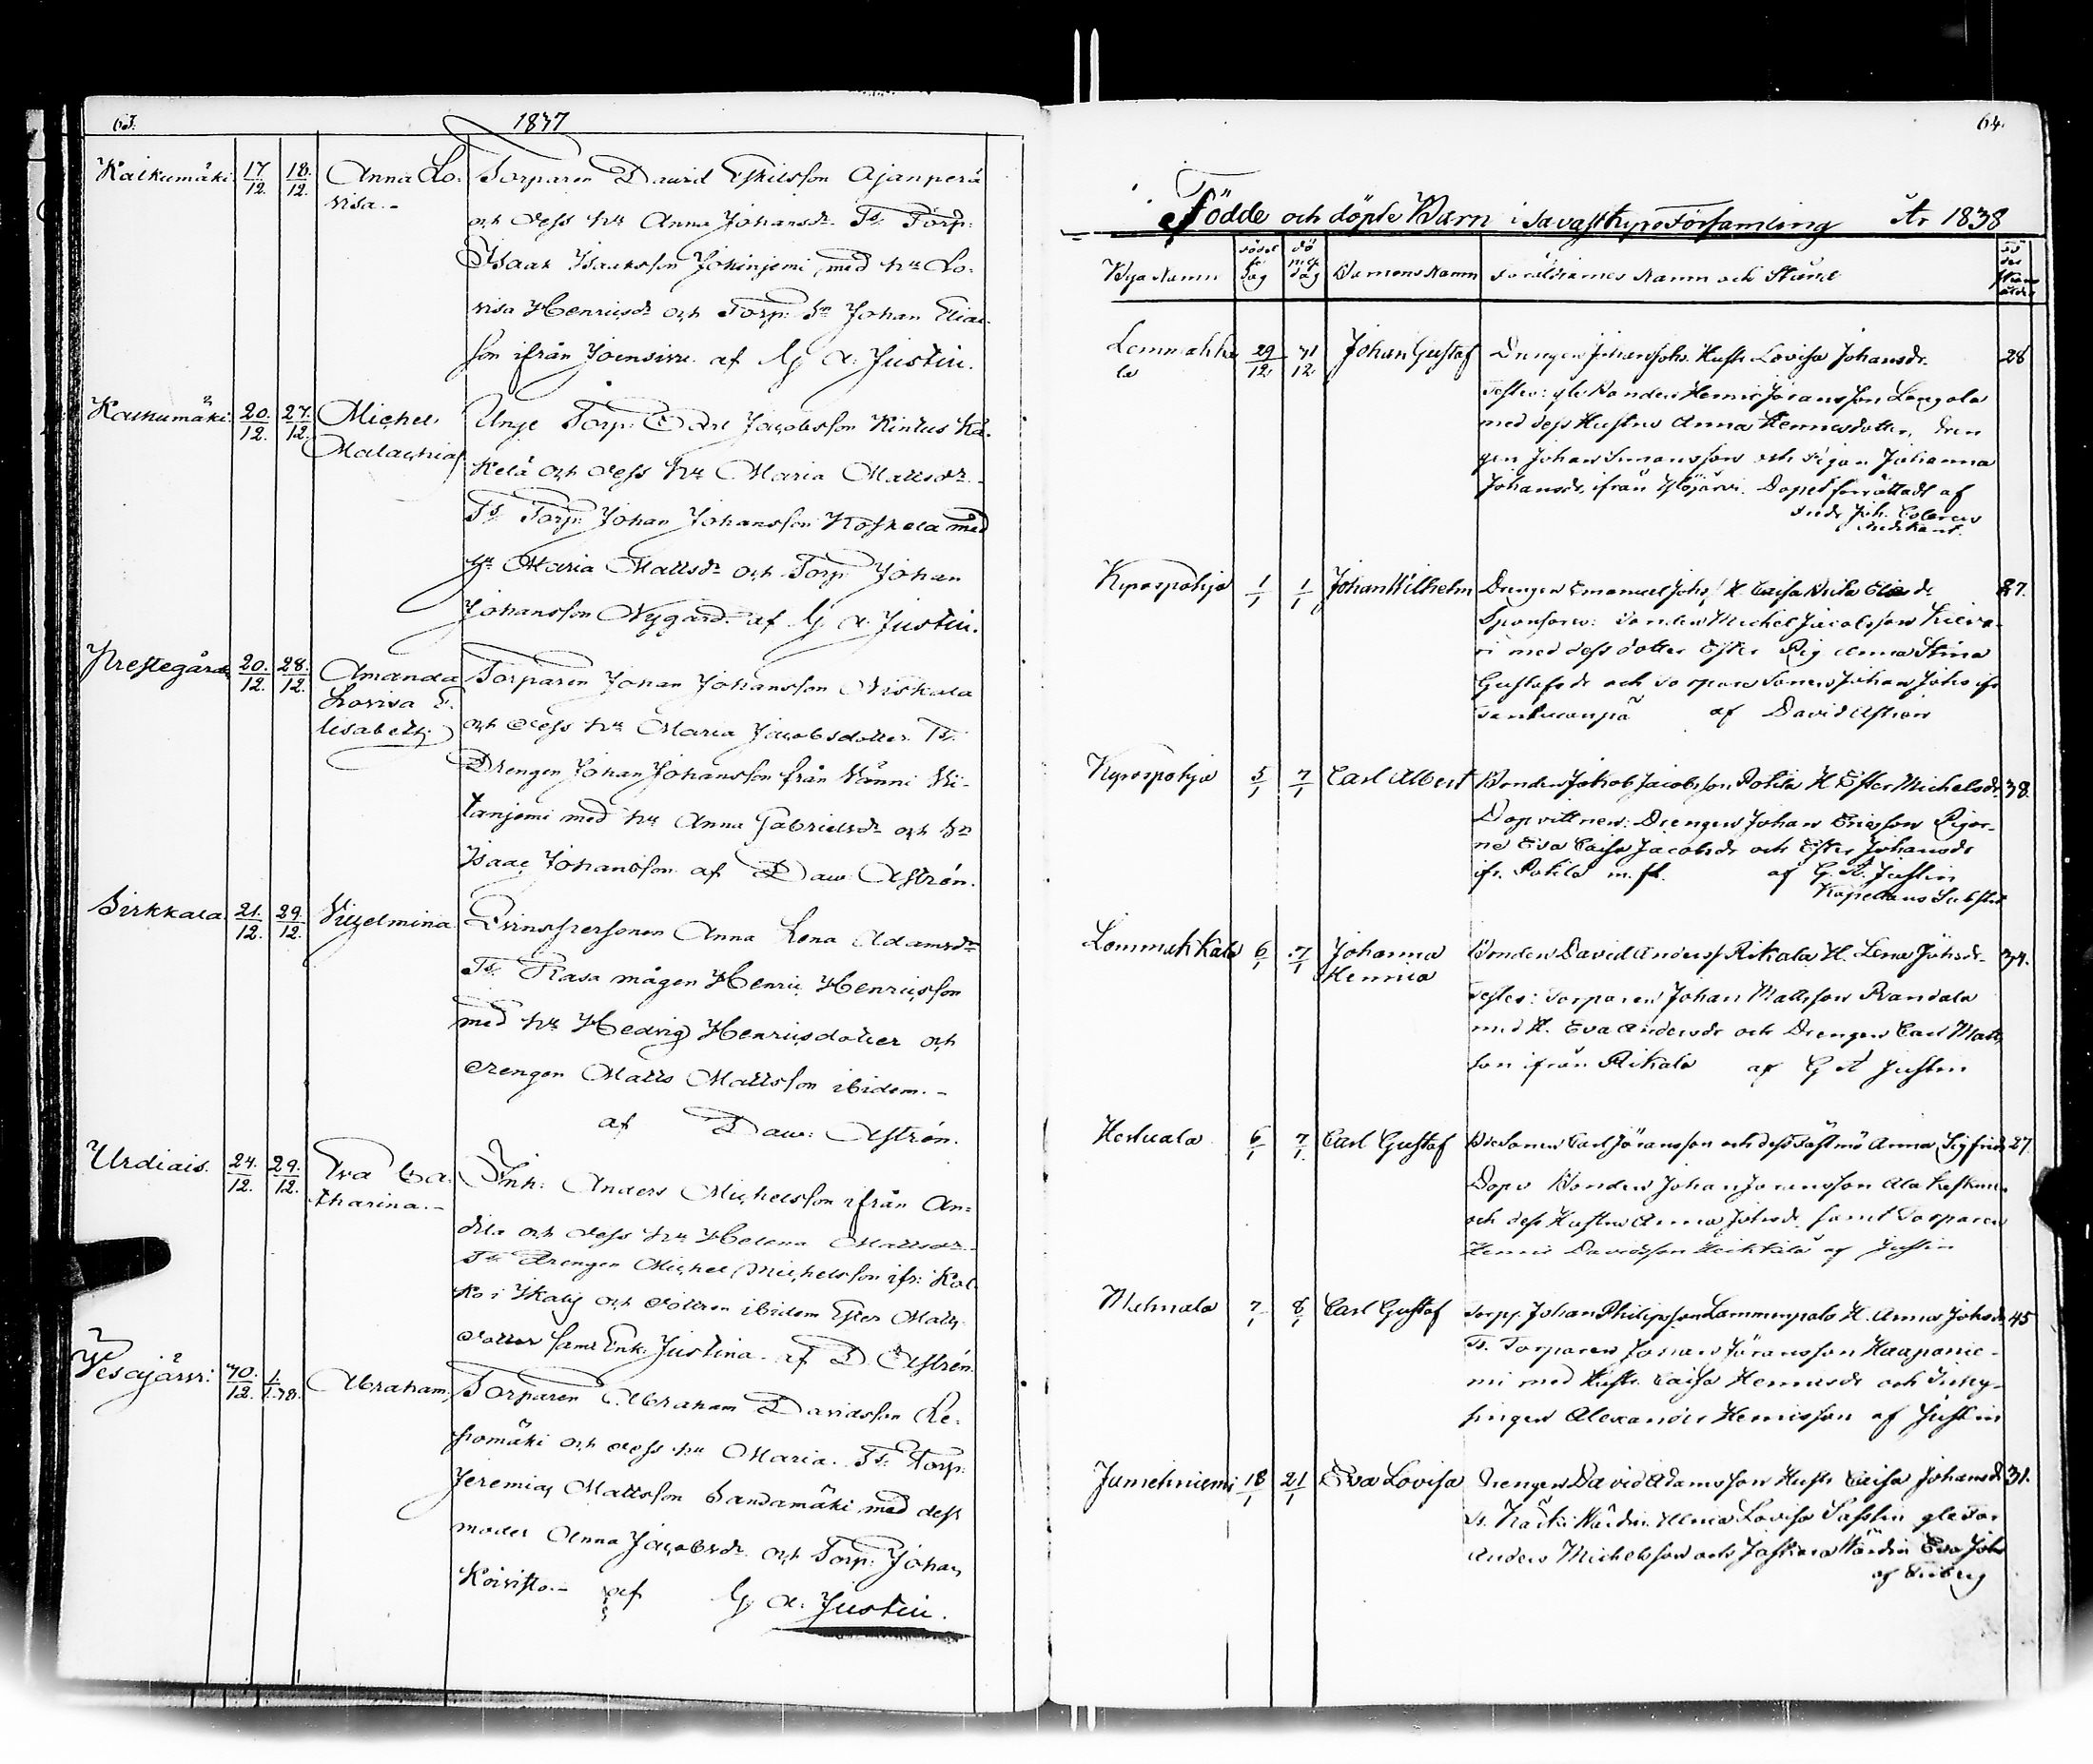 63.
1837
Kaikumäki 17/12. 18./12. Anna Lo- Torparen David Eskilsson Ajanperä
visa.- och dess hu Anna Johansdr. Ts. Torp:
Isaak Isaaksson Johinjemi, med hu Lo-
visa Henricsdr och Torp: Sn Johan Elias-
son ifrån Joensivu. af G. A. Justin.
Kaikumäki. 20./12. 27./12. Michel Unge Torp: Carl Jacobsson Kintus Kä-
Malachias kelä och dess hu Maria Mattsdr.
Ts. Torp: Johan Johansson Koskela med
hu Maria Mattsdr och Torp Johan
Johansson Nygård. af G. A. Justin.
Prestegården 20./12. 28./12. Amanda Torparen Johan Johansson Niskala
Lovisa E- och dess hu Maria Jacobsdotter. Ts.
lisabeth Drengen Johan Johansson från Vänni Vi-
tanjemi med hu Anna Gabrielsdr och Sn
Isaac Johansson af Daw Astrén.
Sirkkala. 21./12. 29./12. Vilhelmina Qvinspersonen Anna Lena Adamsdr
Ts. Rasa mågen Henric Henricsson
med hu Hedvig Henricsdotter och
drengen Matts Mattsson ibidem.-
af Daw: Astrén.
Urdiais. 24./12. 29./12. Eva Ca- Inh: Anders Michelsson ifrån An-
tharina.- dila och dess hu Helena Mattsdr.
Ts. Drengen Michel Michelsson ifr: Kal-
ko i Ikalis och dottren ibidem Ester Matts
dotter samt Enk: Justina. af D. Astrén.
Vesajärvi: 30./12. 1./1.38. Abraham, Torparen Abraham Davidsson Re-
pomäki och dess hu Maria. Ts. Torp:
Jeremias Mattsson Sandamäki med dess
moder Anna Jacobsdr. och Torp: Johan
Koivisto.- af G. A. Justin.
64.
Födde och döpte Barn i Tavastkyro Församling År 1838
Bya Namn föd dag döpelse dag Barnens Namn Föräldrarnes Namn och Stånd
Lemmakka 29/12 31/12. Johan Gustaf Drengen Johan Johs. Hustr Lovisa Johansdr. 28
la Testes: gle Bonden Henric Joransson Lengola
med dess Hustru Anna Henricsdotter, Dren
gen Johan Simonsson och Pigan Johanna
Johansdr, ifrån Ylöjärvi. Dopet förrättadt af
Studr Joh.
Kyrospohja 1/1 1/1 Johan Wilhelm Drengen Emanuel Johs. H. Caisa Eliædr 27.
Sponsores: Bonden Michel Jacobsson Kierva-
ri med dess dotter Ester Pig Anna Stina
Gustafsdr och Torpare Sonen Johan Johs ifr
af David Astren
Kyrospohja 5/1 7/1 Carl Albert Bonden Jakob Jacobsson Pokila H. Ester Michelsdr. 38.
Dopvittnen: Drengen Johan Ericsson Pigor-
ne Eva Caisa Jacobsdr och Ester Johansdr
ifr. Pokila m. fl. af G. A. Justin
Kapellans Substit
Lemmakkala 6/1 7/1 Johanna Bonden David Anderss Rikala H. Lena Johsdr. 34.
Henrica Testes: Torparen Johan Mattsson Randala
med H. Eva Andersdr och Drengen Carl Matts
son ifrån Rikala af G A Justin
Herluala 6/1 7/1. Carl Gustaf Bdesonen Carl Joransson och dess Fästmö Anna Sigfrids 27.
Dopv Bonden Johan Joransson Ala
och dess Hustru Anna Johsdr. samt Torparen
Henric Davidsson Heikkilä af Justin
Mahnala 7/1 8/1 Carl Gustaf Torp Johan Philipsson Lammenpalo H. Anna Johsdr 45
Ts. Torparen Johan Joransson Haapanie-
mi med Hustr. Caisa Henricsdr och Yng-
lingen Alexander Henricsson af Justin
Jumehniemi 18/1 21/1 Eva Lovisa Drengen David Adamsson Hustr Caisa Johansdr 31.
Ts. Lovisa gle Tor
Anders Michelsson och Eva Johs
af